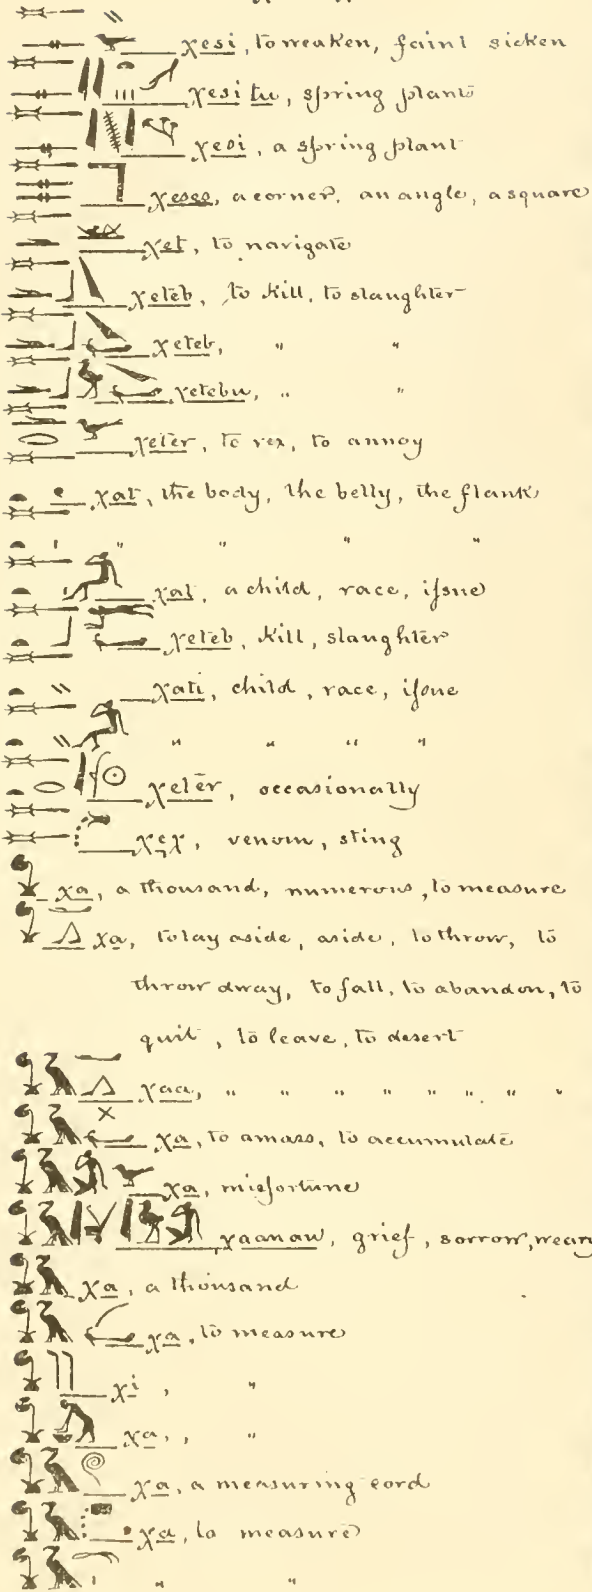 χesi, to weaken, faint sicken
χesi tu, spring plants
χesi, a spring plant
χeses, a corner, an angle, a square
χet, to navigate
χeteb, to kill, to slaughter
χeteb, " "
χetebu, " "
χeter, to vex, to annoy
χat, the body, the belly, the flank
" " " "
χat, a child, race, issue
χeteb, kill, slaughter
χati, child, race, issue
" " " "
χeter, occasionally
χeχ, venom, sting
χa, a thousand, numerous, to measure
χa, to lay aside, aside, to throw, to
throw away, to fall, to abandon, to
quit, to leave, to desert
χaa, " " " " " " " "
χa, to amass, to accumulate
χa, misfortune
χaanau, grief, sorrow, weary
χa, a thousand
χa, to measure
χi, "
χa, , "
χa, a measuring cord
χa, to measure
" "